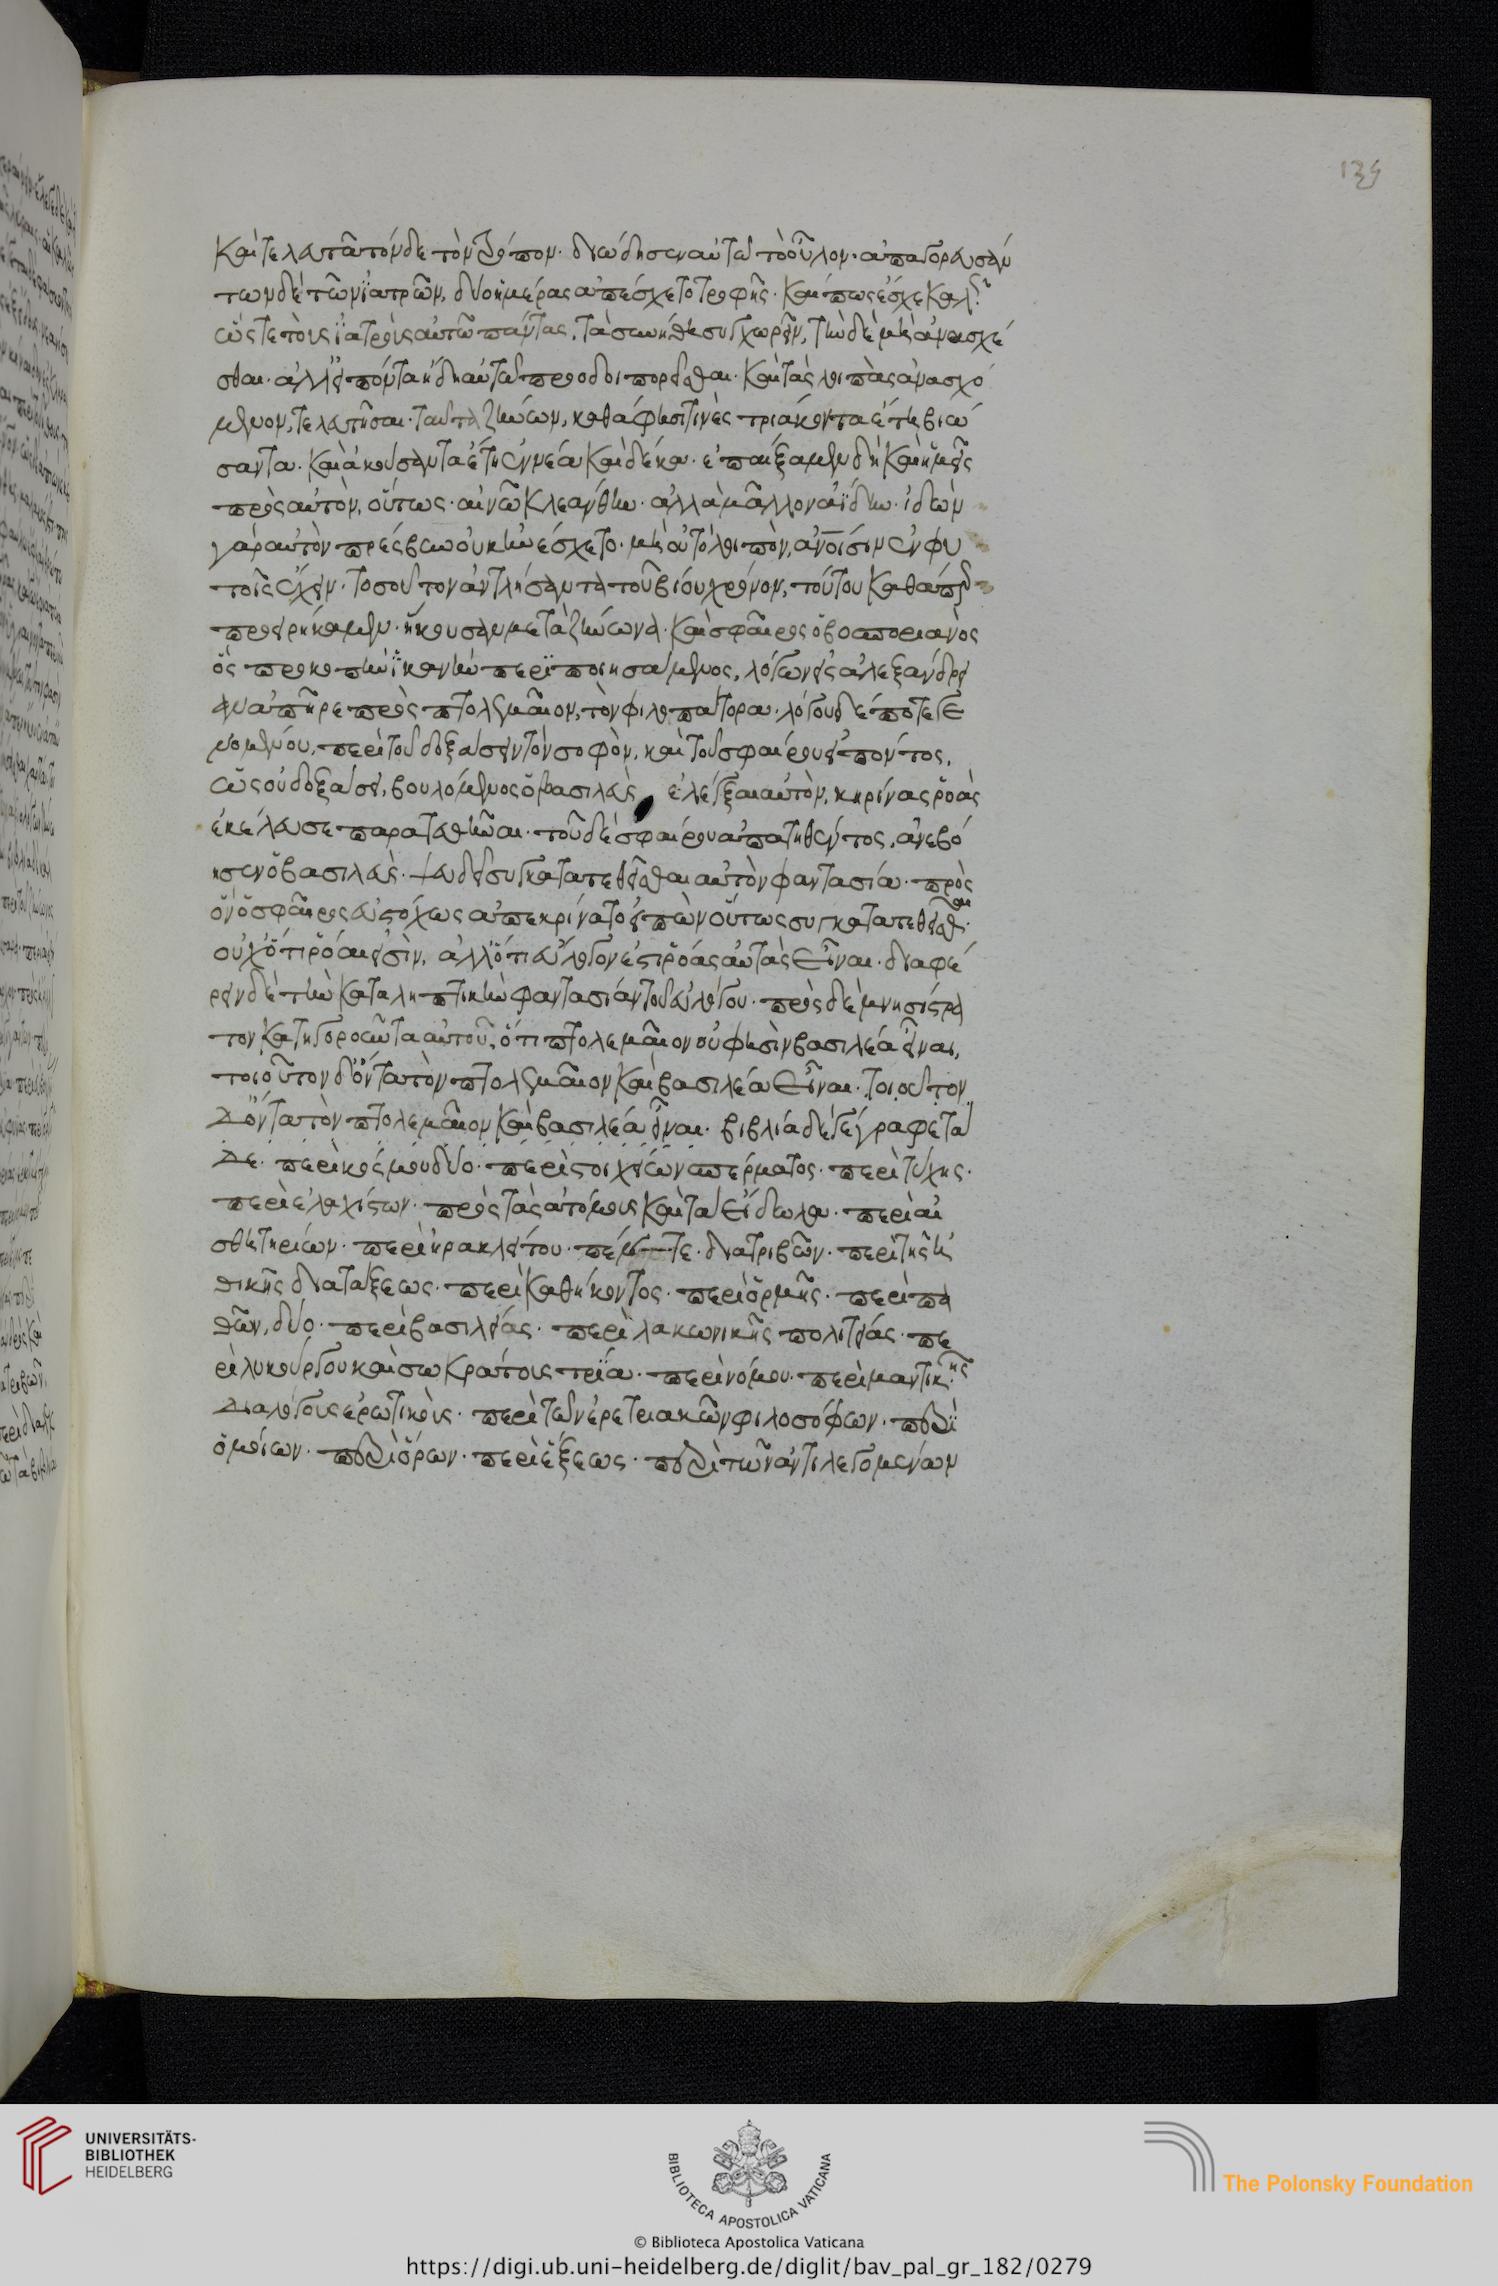 139
καὶ τελευτᾶ τόνδε τὸν τρόπον· διώδησεν αυτῶ τὸ οὖλον· ἀπαγορευσάν
των δὲ τῶν ἰατρῶν, δύο ἡμέρας ἀπέσχετο τροφῆς· καί πως ἔσχε καλῶς
ὥς τε τοὺς ἰατροὺς αὐτῶ πάντας, τὰ συνήθη συγχωρεῖν, τὸν δὲ μὴ ἀνασχέ
σθαι· ἀλλ' εἰπόντα ἤδη αὐτῶ προοδοιπορεῖσθαι· καὶ τὰς λοιπὰς ἀποσχό
μενον, τελευτῆσαι· ταυτὰ ζήνωνι, καθά φησι τινὲς τριάκοντα ἔτη βιώ
σαντα· καὶ ἀκούσαντα ἔτη ἐννέα καὶ δέκα· ἐπαίξαμεν δὴ καὶ ἡμεῖς
πρὸς αὐτὸν, οὕτως· αἰνῶ κλεάνθην· ἀλλὰ μᾶλλον ἀΐδην· ἰδὼν
γὰρ αὐτὸν πρέσβυν οὐκ ἠνέσχετο· μὴ οὐ τὸ λοιπὸν, ἀνοίσιν ἐν φυ
τοῖς ἔχειν· τοσοῦτον ἀντλήσαντα τοῦ βίου χρόνον, τούτου καθάπερ
προειρήκαμεν· ἤκουσαν μετὰ ζήνωνα· καὶ σφαῖρος ὁ βοσποριανὸς
ὃς προκοπὴν ἱκανὴν περιποιησάμενος, λόγων εἰς ἀλεξάνδρει
αν ἀπῆρε πρὸς πτολεμαῖον, τὸν φιλοπάτορα· λόγου δέ ποτε γε
νομένου, περὶ τοῦ δοξάσειν τὸν σοφὸν, καὶ τοῦ σφαίρου εἰπόντος,
ὡς οὐ δοξάσει, βουλόμενος ὁ βασιλεὺς ἐλέγξαι αὐτὸν, κηρίνας ῥοὰς
ἐκέλευσε παρατεθῆναι· τοῦ δὲ σφαίρου ἀπατηθέντος, ἀνεβό
ησεν ὁ βασιλεὺς· ψευδεῖ συγκατατεθεῖσθαι αὐτὸν φαντασία· πρὸς
ὃν ὁ σφαῖρος εὐστόχως ἀπεκρίνατο εἰπὼν οὕτως συγκατατεθεῖσθαι·
οὐχ ὅτι ῥόαι εἰσὶν, ἀλλ' ὅτι εὔλογόν ἐστι ῥόας αὐτὰς εἶναι· διαφέ
ρειν δὲ τὴν καταληπτικὴν φαντασίαν τοῦ εὐλόγου· πρὸς δὲ μνησίστρα
τον κατηγοροῦντα αὐτοῦ, ὅτι πτολεμαῖον οὔ φησὶν βασιλέα εἶναι,
τοιοῦτον δ' ὄντα τὸν πτολεμαῖον καὶ βασιλέα εἶναι· τοιοῦτον
δ' ὄντα τὸν πτολεμαῖον καὶ βασιλέα εἶναι· βιβλία δὲ γέγραφε τά
δε· περὶ κόσμου δύο· περὶ στοιχείων σπέρματος· περὶ τύχης·
περὶ ἐλαχίστων· πρὸς τὰς ἀτόμους καὶ τὰ εἴδωλα· περὶ αἰ
σθητηρίων· περὶ ἡρακλείτου· πέντε· διατριβῶν· περὶ τῆς ἠ
θικῆς διατάξεως· περὶ καθήκοντος· περὶ ὁρμῆς· περὶ πα
θῶν, δύο· περὶ βασιλείας· περὶ λακωνικῆς πολιτείας· πε
ρὶ λυκούργου καὶ σωκράτους τρία· περὶ νόμου· περὶ μαντικῆς
διαλόγους ἐρωτικοὺς· περὶ τῶν ἐρετριακῶν φιλοσόφων· περὶ
ὁμοίων· περὶ ὅρων· περὶ ἕξεως· περὶ τῶν ἀντιλεγομένων
UNIVERSITÄTS-
BIBLIOTHEK
HEIDELBERG
BIBLIOTECA APOSTOLICA VATICANA
The Polonsky Foundation
© Biblioteca Apostolica Vaticana
https://digi.ub.uni-heidelberg.de/diglit/bav_pal_gr_182/0279